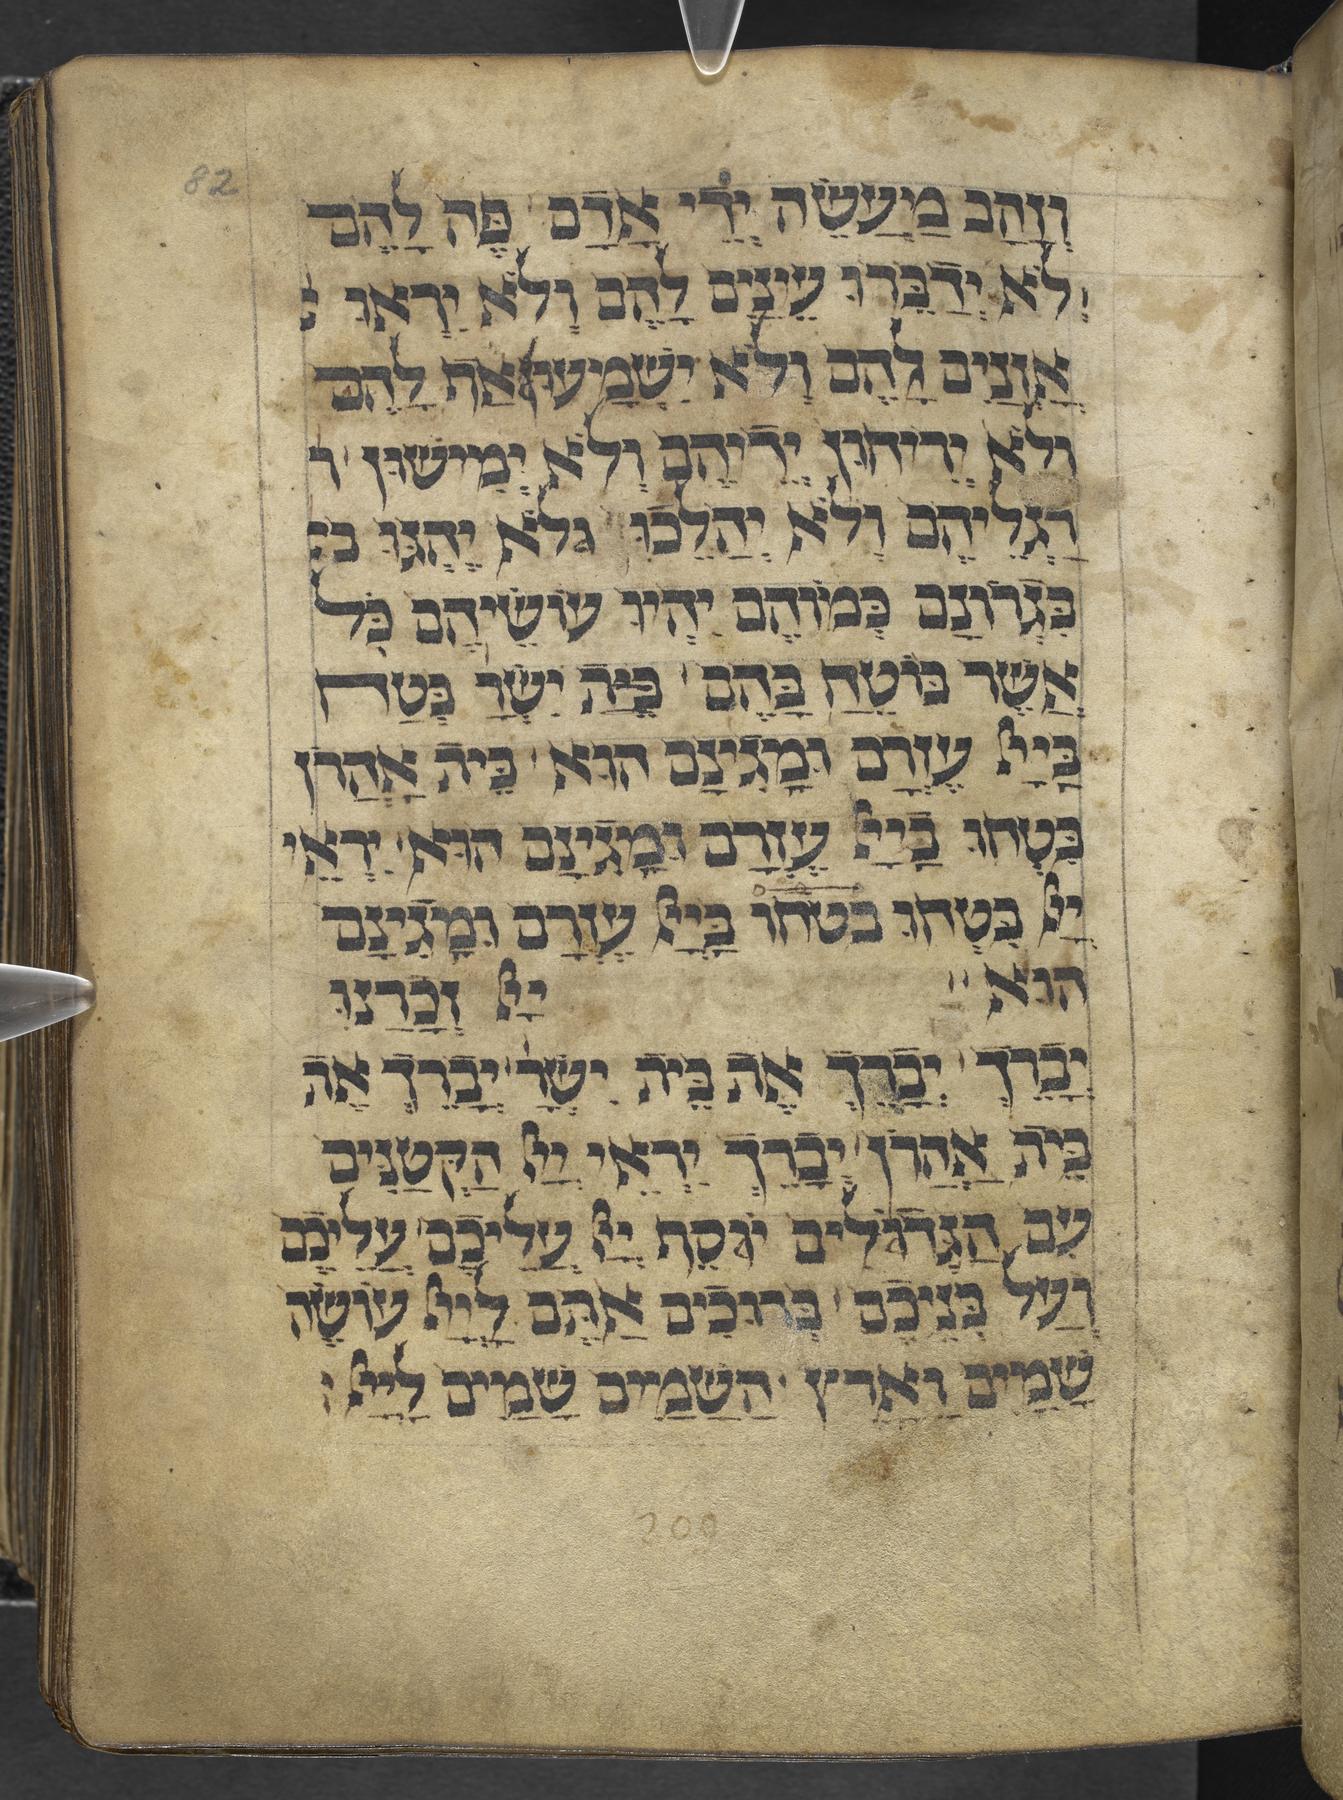 82
וְזָהָב מַעֲשֵׂה יְדֵי אָדָם פֶּה לָהֶם
וְלֹא יְדַבֵּרוּ עֵינַיִם לָהֶם וְלֹא יִרְאוּ
אָזְנַיִם לָהֶם וְלֹא יִשְׁמָעוּ אַף לָהֶם
וְלֹא יְרִיחוּן יְדֵיהֶם וְלֹא יְמִישׁוּן ר
רַגְלֵיהֶם וְלֹא יְהַלֵּכוּ וְלֹא יֶהְגּוּ בג
בִּגְרוֹנָם כְּמוֹהֶם יִהְיוּ עוֹשֵׂיהֶם כֹּל
אֲשֶׁר בּוֹטֵחַ בָּהֶם בֵּית יִשְׂר בְּטַח
בַּייָ עֶזְרָם וּמָגִינָם הוּא בֵּית אַהֲרֹן
בִּטְחוּ בַּייָ עֶזְרָם וּמָגִינָם הוּא יִרְאֵי
יְיָ בִּטְחוּ בטחו בַּייָ עֶזְרָם וּמָגִינָם
הוּא יְיָ זְכָרָנוּ
יְבָרֵךְ יְבָרֵךְ אֶת בֵּית יִשְׂר יְבָרֵךְ אֶת
בֵּית אַהֲרֹן יְבָרֵךְ יִרְאֵי יְיָ הַקְּטַנִּים
עִם הַגְּדוֹלִים יוֹסֵף יְיָ עֲלֵיכֶם עֲלֵיכֶם
וְעַל בְּנֵיכֶם בְּרוּכִים אַתֶּם לַייָ עוֹשֵׂה
שָׁמַיִם וָאָרֶץ הַשָּׁמַיִם שָׁמַיִם לַייָ
200